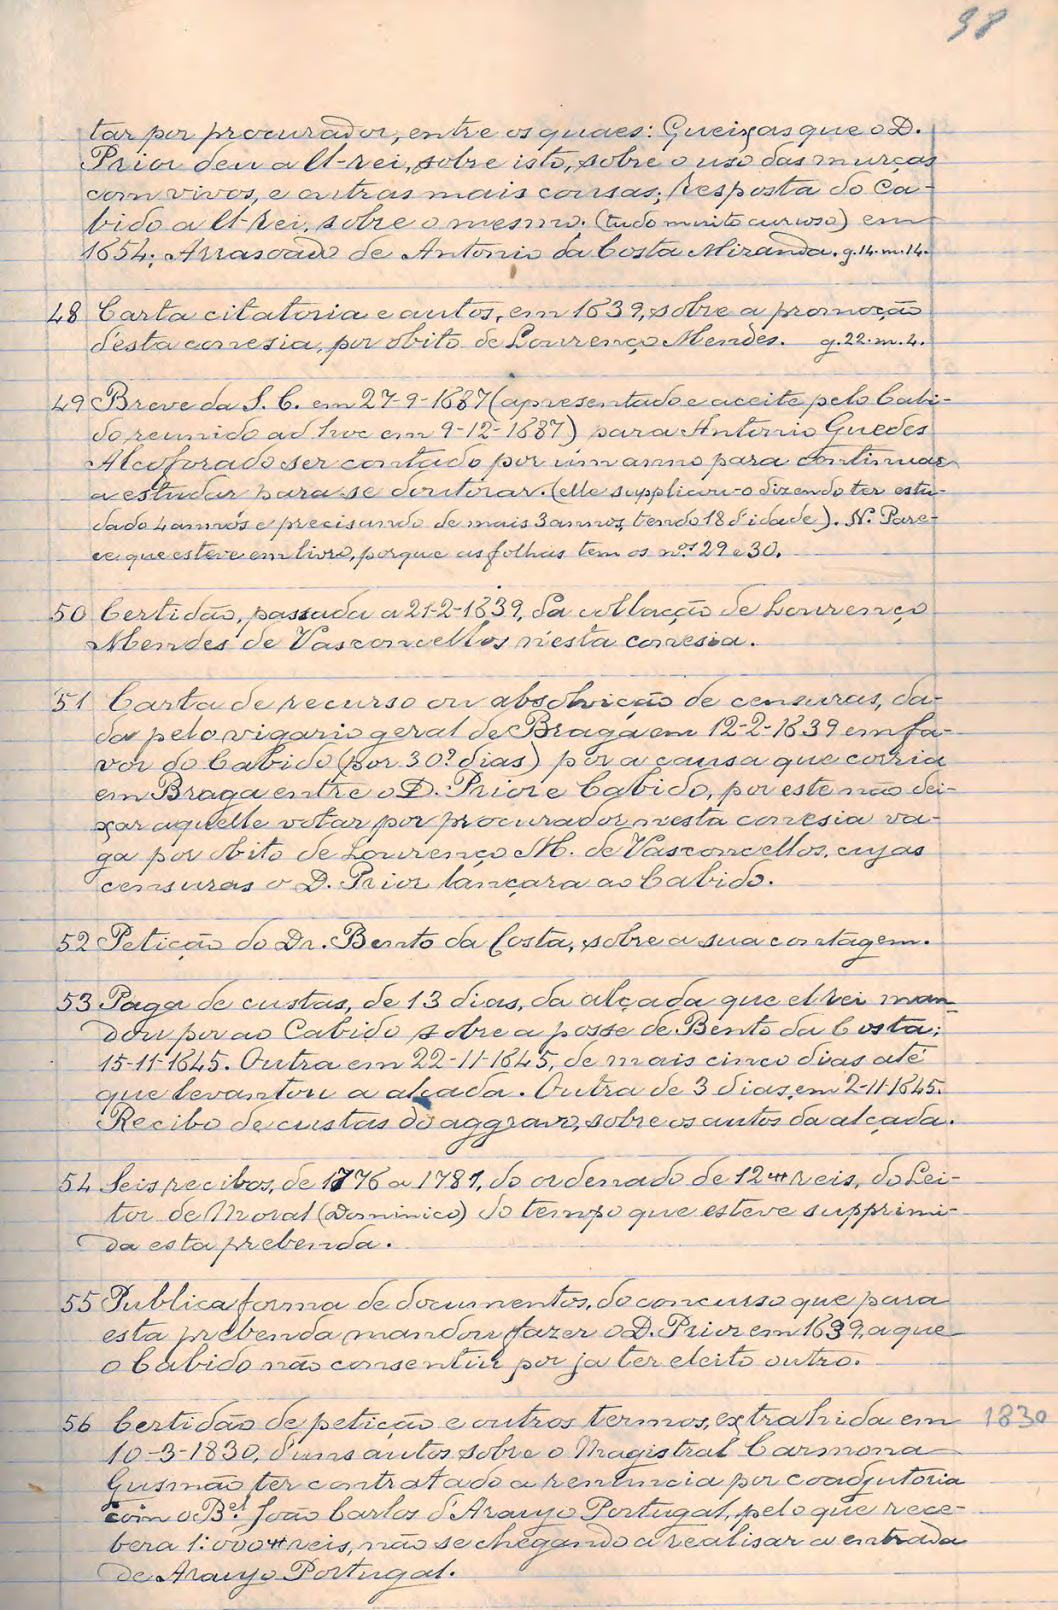 98
tar por procurador, entre os quaes: Queixas que o D.
Prior deu a El-rei, sobre isto, sobre o uso das murças
com vivos, e outras mais cousas; Resposta do Ca-
bido a El-Rei, sobre o mesmo. (tudo muito curioso) em
1654; Arrasoado de Antonio da Costa Miranda. g.14.m.14.
48 Carta citatoria e autos, em 1639, sobre a promoção
d'esta conesia, por obito de Lourenço Mendes. g.22.m.4.
49 Breve da S. C. em 27-9-1687 (apresentado e aceite pelo Cabi-
do, reunido ad hoc em 9-12-1687) para Antonio Guedes
Alcoforado ser contado por um anno para continuar
a estudar para se doutorar. (elle supplicou-o dizendo ter estu-
dado 4 annos e precisando de mais 3 annos, tendo 18 d'idade). N. Pare-
ce que esteve em livro, porque as folhas tem os nos 29 e 30.
50 Certidão, passada a 21-2-1639, da collação de Lourenço
Mendes de Vasconcellos n'esta conesia.
51 Carta de recurso ou absolvição de censuras, da-
da pelo vigario geral de Braga em 12-2-1639 em fa-
vor do Cabido (por 30 dias) por a causa que corria
em Braga entre o D. Prior e Cabido, por este não dei-
xar aquelle votar por procurador nesta conesia va-
ga por obito de Lourenço M. de Vasconcellos, cujas
censuras o D. Prior lançara ao Cabido.
52 Petição do Dr. Bento da Costa, sobre a sua contagem.
53 Paga de custas, de 13 dias, da alçada que el rei man-
dou por ao Cabido sobre a posse de Bento da Costa;
15-11-1645. Outra em 22-11-1645, de mais cinco dias até
que levantou a alçada. Outra de 3 dias, em 2-11-1645.
Recibo de custas do aggravo, sobre os autos da alçada.
54 Seis recibos, de 1776 a 1781, do ordenado de 12# reis, do Lei-
tor de Moral (Dominico) do tempo que esteve supprimi-
da esta prebenda.
55 Publica forma de documentos, do concurso que para
esta prebenda mandou fazer o D. Prior em 1639, a que
o Cabido não consentiu por ja ter eleito outro.
56 Certidão de petição e outros termos, extrahida em 1830
10-3-1830, d'uns autos sobre o Magistral Carmona
Gusmão ter contratado a renuncia por coadjutoria
com o Bel João Carlos d'Araujo Portugal, pelo que rece-
bera 1:000# reis, não se chegando a realisar a entrada
de Araujo Portugal.